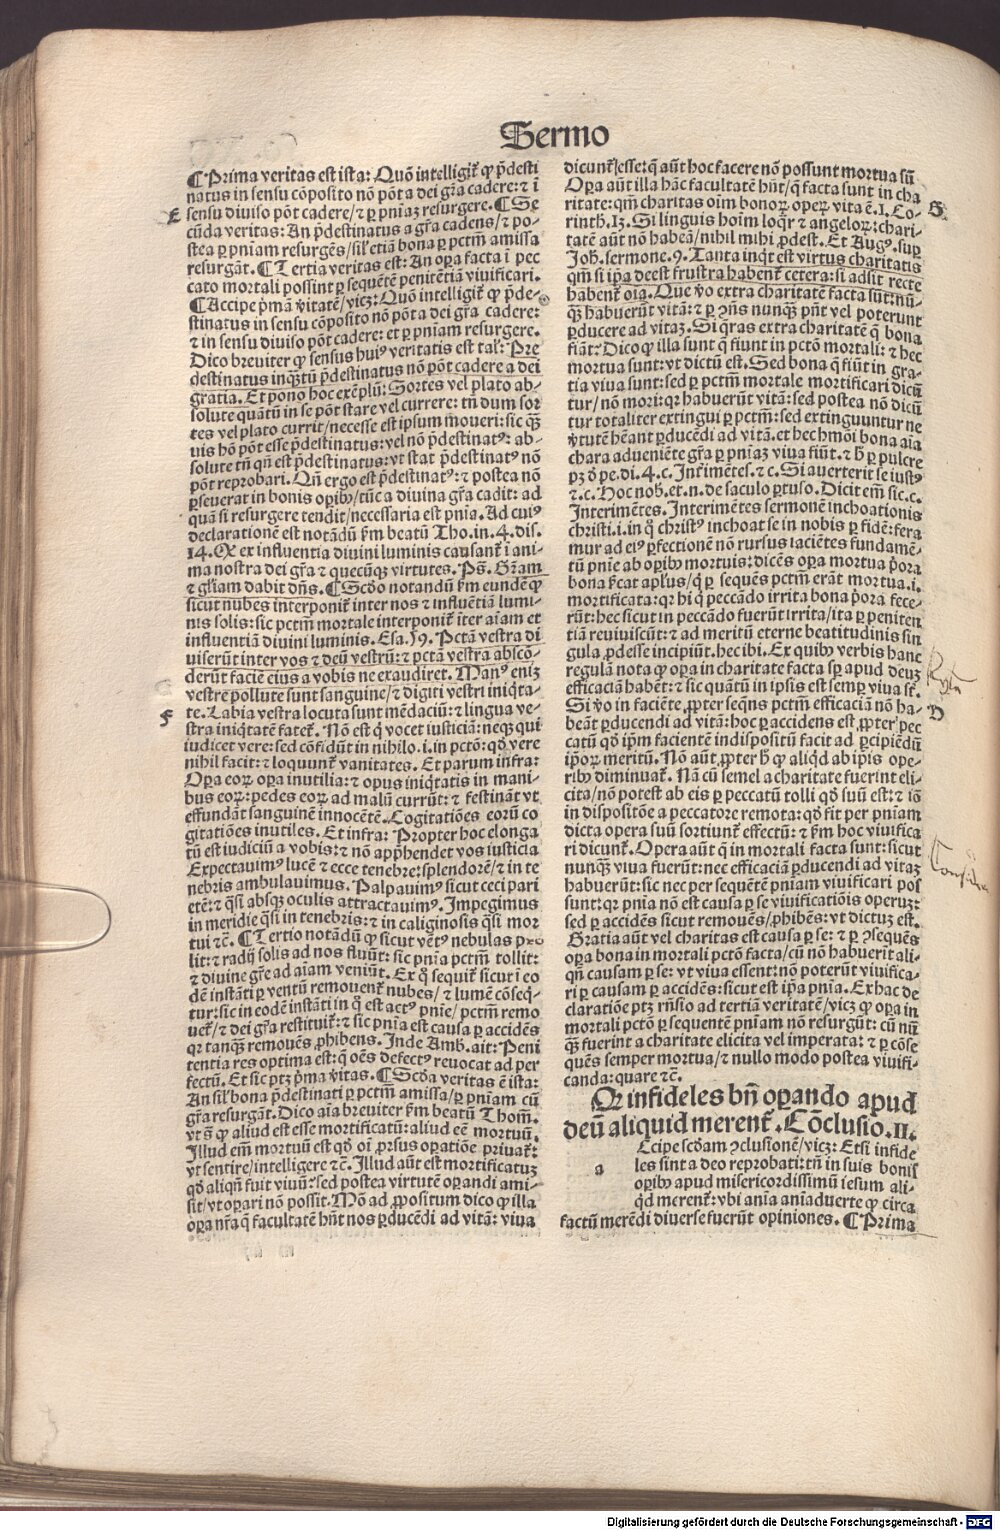 Sermo
¶ Prima veritas est ista: Quõ intelligit̃ ꝙ p̃desti
natus in sensu cõposito nõ põt a dei gr̃a cadere: ⁊ ĩ
E sensu diviso põt cadere/ ⁊ ꝑ pniaꝫ resurgere. ¶ Se
cũda veritas: An p̃destinatus a gr̃a cadens/ ⁊ po-
stea ꝑ pniam resurgẽs/ sil' etiã bona ꝑ pctm̃ amissa
resurgãt. ¶ Tertia veritas est: An oꝑa facta ĩ pec
cato mortali possint ꝑ sequẽtẽ penitẽtiã vivificari.
¶ Accipe p̃mã v̓itatẽ/ vicꝫ: Quõ intelligit̃ ꝙ p̃de-
stinatus in sensu cõposito nõ põt a dei gr̃a cadere:
⁊ in sensu diviso põt cadere: et ꝑ pniam resurgere.
Dico breviter ꝙ sensus huiꝰ veritatis est tal': Pre
destinatus inqꝫtũ p̃destinatus nõ põt cadere a dei
gratia. Et pono hoc exẽplũ: Sortes vel plato ab-
solute quãtũ in se põt stare vel currere: tñ dum sor
tes vel plato currit/ necesse est ipsum moveri: sic qꝫ
vis hõ põt esse p̃destinatus: vel nõ p̃destinatꝰ: ab-
solute tñ qñ est p̃destinatus: vt stat p̃destinatꝰ nõ
põt reprobari. Qñ ergo est p̃destinatꝰ: ⁊ postea nõ
ꝑseverat in bonis oꝑibꝰ/ tũc a divina gr̃a cadit: ad
quã si resurgere tendit/ necessaria est pnia. Ad cuiꝰ
declarationẽ est notãdũ ẜm beatũ Tho. in. 4. dis.
14. Qꝫ ex influentia divini luminis causant̃ ĩ ani-
ma nostra dei gr̃a ⁊ quecũqꝫ virtutes. Ps̃. Gr̃am
⁊ gl'iam dabit dñs. ¶ Scd̃o notandũ ẜm eundẽ ꝙ
sicut nubes interponit̃ inter nos ⁊ influẽtiã lumi-
nis solis: sic pctm̃ mortale interponit̃ iter aiam et
influentiã divini luminis. Esa. 59. Pctã vestra di
viserũt inter vos ⁊ deũ vestrũ: ⁊ pctã vestra abscõ-
derũt faciẽ eius a vobis ne exaudiret. Manꝰ eniꝫ
vestre pollute sunt sanguine/ ⁊ digiti vestri iniqta-
F te. Labia vestra locuta sunt mẽdaciũ: ⁊ lingua ve-
stra iniqtatẽ fatet̃. Nõ est q̓ vocet iusticiã: neqꝫ qui
iudicet vere: sed cõfidũt in nihilo. i. in pctõ: qd̓ vere
nihil facit: ⁊ loquunt̃ vanitates. Et parum infra:
Oꝑa eoꝝ oꝑa inutilia: ⁊ opus iniqtatis in mani-
bus eoꝝ: pedes eoꝝ ad malũ currũt: ⁊ festinãt vt
effundãt sanguinẽ innocẽtẽ. Cogitatiões eorũ co
gitatiões inutiles. Et infra: Propter hoc elonga
tũ est iudiciũ a vobis: ⁊ nõ app̃hendet vos iusticia
Expectavimꝰ lucẽ ⁊ ecce tenebre: splendorẽ/ ⁊ in te
nebris ambulavimus. Palpavimꝰ sicut ceci pari
etẽ: ⁊ q̃si absqꝫ oculis attractavimꝰ. Impegimus
in meridie q̃si in tenebris: ⁊ in caliginosis q̃si mor
tui ⁊c̃. ¶ Tertio notãdũ ꝙ sicut vẽtꝰ nebulas
lit: ⁊ radij solis ad nos fluũt: sic pnia pctm̃ tollit:
⁊ divine gr̃e ad aiam veniũt. Ex q̓ sequit̃ sicut ĩ eo
dẽ instãti ꝑ ventũ removent̃ nubes/ ⁊ lumẽ cõseq̃-
tur: sic in eodẽ instãti in q̓ est actꝰ pnie/ pctm̃ remo
vet̃/ ⁊ dei gr̃a restituit̃: ⁊ sic pnia est causa ꝑ accidẽs
qꝛ tanqꝫ removẽs ꝓhibens. Inde Amb. ait: Peni
tentia res optima est: q̃ oẽs defectꝰ revocat ad per
fectũ. Et sic ptꝫ p̃ma v̓itas. ¶ Scd̃a veritas ẽ ista:
An sil' bona p̃destinati ꝑ pctm̃ amissa/ ꝑ pniam cũ
gr̃a resurgãt. Dico aĩa breviter ẜm beatũ Thom̃.
vt s̃ ꝙ aliud est esse mortificatũ: aliud eẽ mortuũ.
Illud em̃ mortuũ est qd̓ oĩ ꝓrsus oꝑatiõe privat̃:
vt sentire/ intelligere ⁊c̃. Illud aũt est mortificatuꝫ
qd̓ aliqñ fuit vivũ: sed postea virtutẽ oꝑandi ami-
sit/ vt oꝑari nõ possit. Mõ ad ꝓpositum dico ꝙ illa
oꝑa nr̃a q̃ facultatẽ hñt nos ꝑducẽdi ad vitã: viva
dicunt̃ esse: q̃ aũt hoc facere nõ possunt mortua sũt
Oꝑa aũt illa hãc facultatẽ hñt/ q̃ facta sunt in cha
ritate: qm̃ charitas oĩm bonoꝝ oꝑum vita ẽ. 1. Co- G
rinth. 13. Si linguis hoĩm loqr̃ ⁊ angeloꝝ: chari-
tatẽ aũt nõ habeã/ nihil mihi ꝓdest. Et Augꝰ. sup̃
Joh̃. sermone. 9. Tanta inq̃t est virtus charitatis
qm̃ si ip̃a deest frustra habent̃ cetera: si adsit recte
habent̃ oĩa. Que v̓o extra charitatẽ facta sũt: nũ-
qꝫ habuerũt vitã: ⁊ ꝑ ꝯñs nunqꝫ pñt vel poterunt
ꝑducere ad vitaꝫ. Si q̃ras extra charitatẽ q̃ bona
fiãt: Dico ꝙ illa sunt q̃ fiunt in pctõ mortali: ⁊ hec
mortua sunt: vt dictũ est. Sed bona q̃ fiũt in gra-
tia viva sunt: sed ꝑ pctm̃ mortale mortificari dicũ
tur/ nõ mori: qꝛ habuerũt vitã: sed postea nõ dicũ
tur totaliter extingui ꝑ pctm̃: sed extinguuntur ne
v̓tutẽ hẽant ꝑducẽdi ad vitã. et hechmõi bona aĩa
chara adveniẽte gr̃a ꝑ pniaꝫ viva fiũt. ⁊ h̓ ꝑ pulcre
pꝫ d̓ pe. di. 4. c. Int̓imẽtes. ⁊ c. Si averterit se iustꝰ
⁊. c. Hoc nob̃. et. n. de saculo ꝑtuso. Dicit em̃ sic. c.
Interimẽtes. Interimẽtes sermonẽ inchoationis
christi. i. in q̓ christꝰ inchoat se in nobis ꝑ fidẽ: fera
mur ad eiꝰ ꝑfectionẽ nõ rursus iaciẽtes fundamẽ-
tũ pnie ab oꝑibꝰ mortuis: dicẽs oꝑa mortua p̓ora
bona ẜcat apl'us/ q̃ ꝑ sequẽs pctm̃ erãt mortua. i.
mortificata: qꝛ hi q̓ peccãdo irrita bona p̓ora fece-
rũt: hec sicut in peccãdo fuerũt irrita/ ita ꝑ peniten
tiã reviviscũt: ⁊ ad meritũ eterne beatitudinis sin
gula ꝓdesse incipiũt. hec ibi. Ex quibꝰ verbis hanc
regulã nota ꝙ oꝑa in charitate facta sp̃ apud deuꝫ
efficaciã habẽt: ⁊ sic quãtũ in ipsis est semꝑ viva st̃.
Si v̓o in faciẽte ꝓpter seqñs pctm̃ efficaciã nõ ha-
beãt ꝑducendi ad vitã: hoc ꝑ accidens est ꝓpter pec D
catũ qd̓ ip̃m facientẽ indispositũ facit ad ꝑcipiẽdũ
ip̃oꝝ meritũ. Nõ aũt ꝓpter h̓ ꝙ aliqd̓ ab ip̃is ope-
ribꝰ diminuat̃. Nã cũ semel a charitate fuerint eli-
cita/ nõ potest ab eis ꝑ peccatũ tolli qd̓ suũ est: ⁊ iõ
in dispositõe a peccatore remota: qd̓ fit per pniam
dicta opera suũ sortiunt̃ effectũ: ⁊ ẜm hoc vivifica
ri dicunt̃. Opera aũt q̃ in mortali facta sunt: sicut
nunqꝫ viva fuerũt: nec efficaciã ꝑducendi ad vitaꝫ
habuerũt: sic nec per sequẽtẽ pniam vivificari pos
sunt: qꝛ pnia nõ est causa ꝑ se vivificatiõis operuꝫ:
sed ꝑ accidẽs sicut removẽs/ ꝓhibẽs: vt dictuꝫ est.
Gratia aũt vel charitas est causa ꝑ se: ⁊ ꝑ ꝯsequẽs
oꝑa bona in mortali pctõ facta/ cũ nõ habuerit ali-
qñ causam ꝑ se: vt viva essent: nõ poterũt vivifica-
ri ꝑ causam ꝑ accidẽs: sicut est ip̃a pnia. Ex hac de
claratiõe ptꝫ rñsio ad tertiã veritatẽ/ vicꝫ ꝙ oꝑa in
mortali pctõ ꝑ sequentẽ pniam nõ resurgũt: cũ nũ
qꝫ fuerint a charitate elicita vel imperata: ⁊ ꝑ cõse
quẽs semper mortua/ ⁊ nullo modo postea vivifi-
canda: quare ⁊c̃.
Qꝛ infideles bñ oꝑando apud
deũ aliquid merent̃. Cõclusio. II.
a Ccipe scd̃am ꝯclusionẽ/ vicꝫ: Etsi infide
les sint a deo reprobati: tñ in suis bonis
oꝑibꝰ apud misericordissimũ iesum ali-
qd̓ merent̃: vbi anĩa anĩadverte ꝙ circa
factũ merẽdi diverse fuerũt opiniones. ¶ Prima
Digitalisierung gefördert durch die Deutsche Forschungsgemeinschaft - DFG